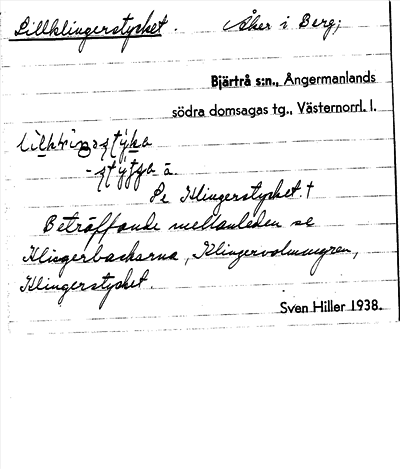 Lillklingerstycket. Åker i Berg;
Bjärtrå s:n., Ångermanlands
södra domsagas tg., Västernorrl. l.
Se Klingerstycket.†
Beträffande mellanleden se
Klingerbackarna, Klingervolmmyren,
Klingerstycket.
Sven Hiller 1938.